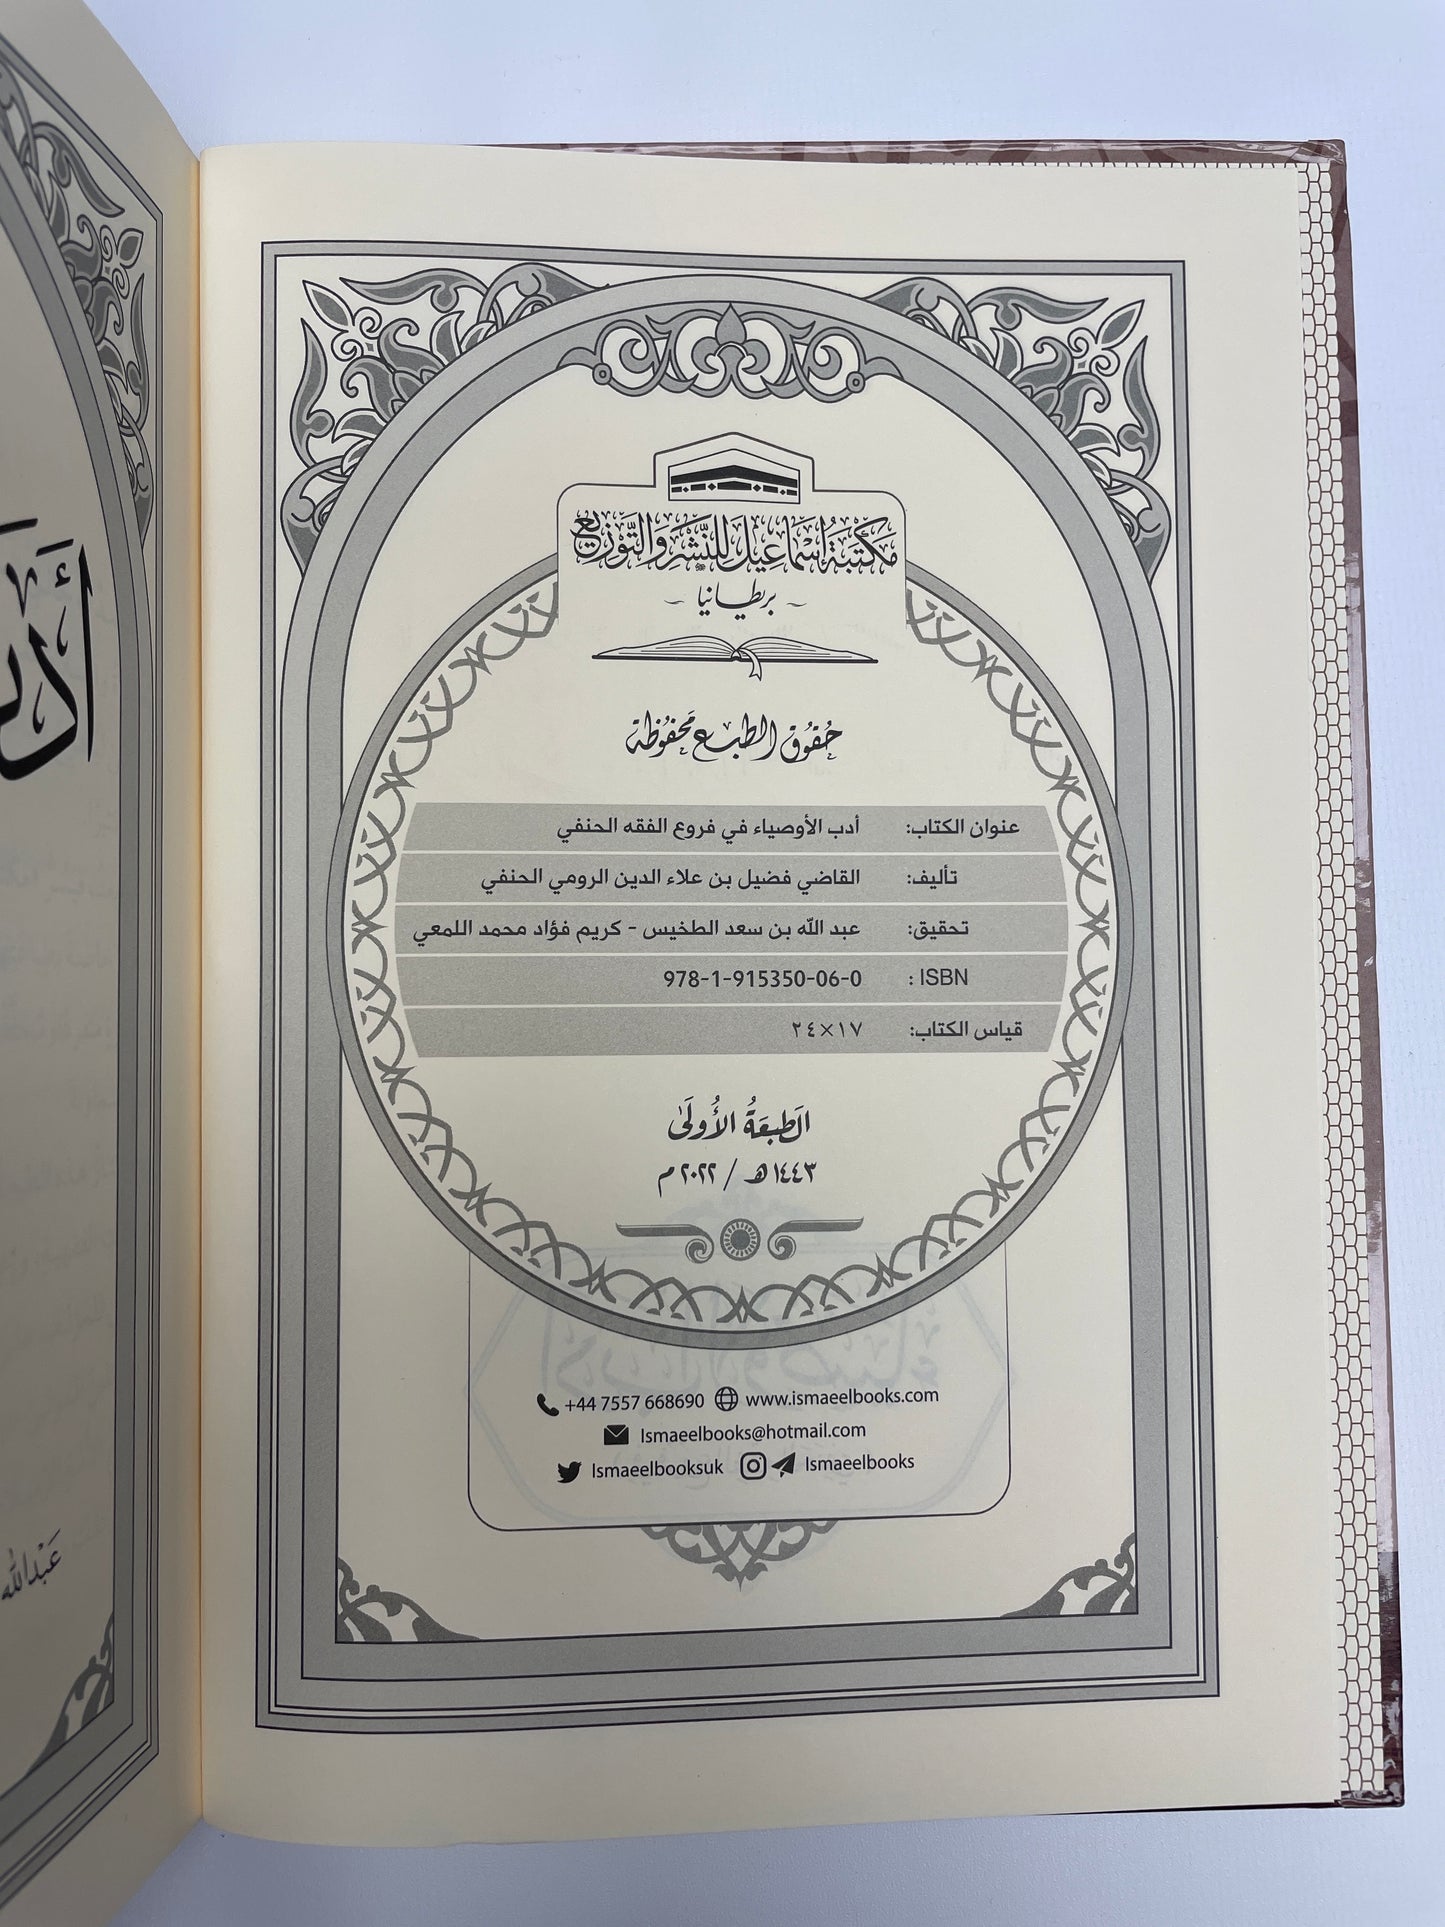 مَكتَبَةُ إِسْمَاعِيلَ لِلنَّشْرِ وَالتَّوْزِيعِ
~ بريطانيا ~
حُقُوق الطبع مَحفُوظة
عنوان الكتاب: أدب الأوصياء في فروع الفقه الحنفي
تأليف: القاضي فضيل بن علاء الدين الرومي الحنفي
تحقيق: عبد الله بن سعد الطخيس - كريم فؤاد محمد اللمعي
ISBN : 978-1-915350-06-0
قياس الكتاب: ١٧×٢٤
الَطبعَةُ الأُولَىٰ
١٤٤٣ هـ / ٢٠٢٢ م
+44 7557 668690 www.ismaeelbooks.com
Ismaeelbooks@hotmail.com
Ismaeelbooksuk Ismaeelbooks
عَبْدالله